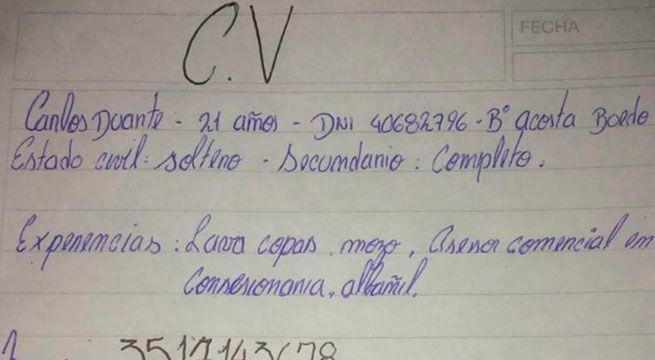 C.V
FECHA
Carlos Duarte - 21 años - DNI 40682796 - B° acosta Boedo
Estado civil: soltero - Secundario: Completo.
Experiencias: Lava copas, mozo, Asesor comercial en
Consesionaria, albañil.